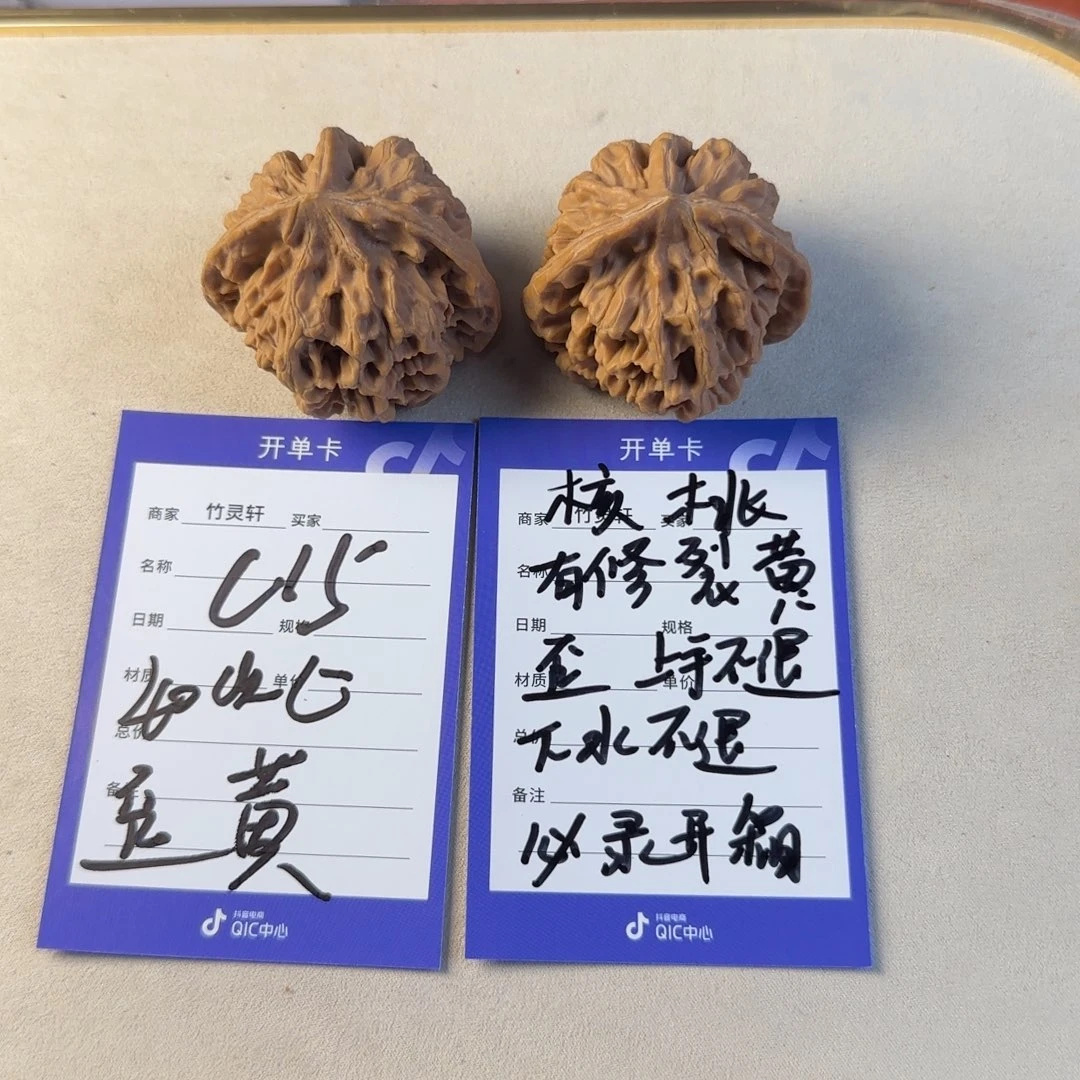 开单卡
商家 竹灵轩 买家
名称
U15
日期 规格
材质 单价
总价
备注
黄
抖音电商
QIC中心
开单卡
核桃
商家 竹灵轩 买家
有修裂黄
名称
日期 规格
歪 上手不退
材质 单价
下水不退
总价
备注
必录开箱
抖音电商
QIC中心